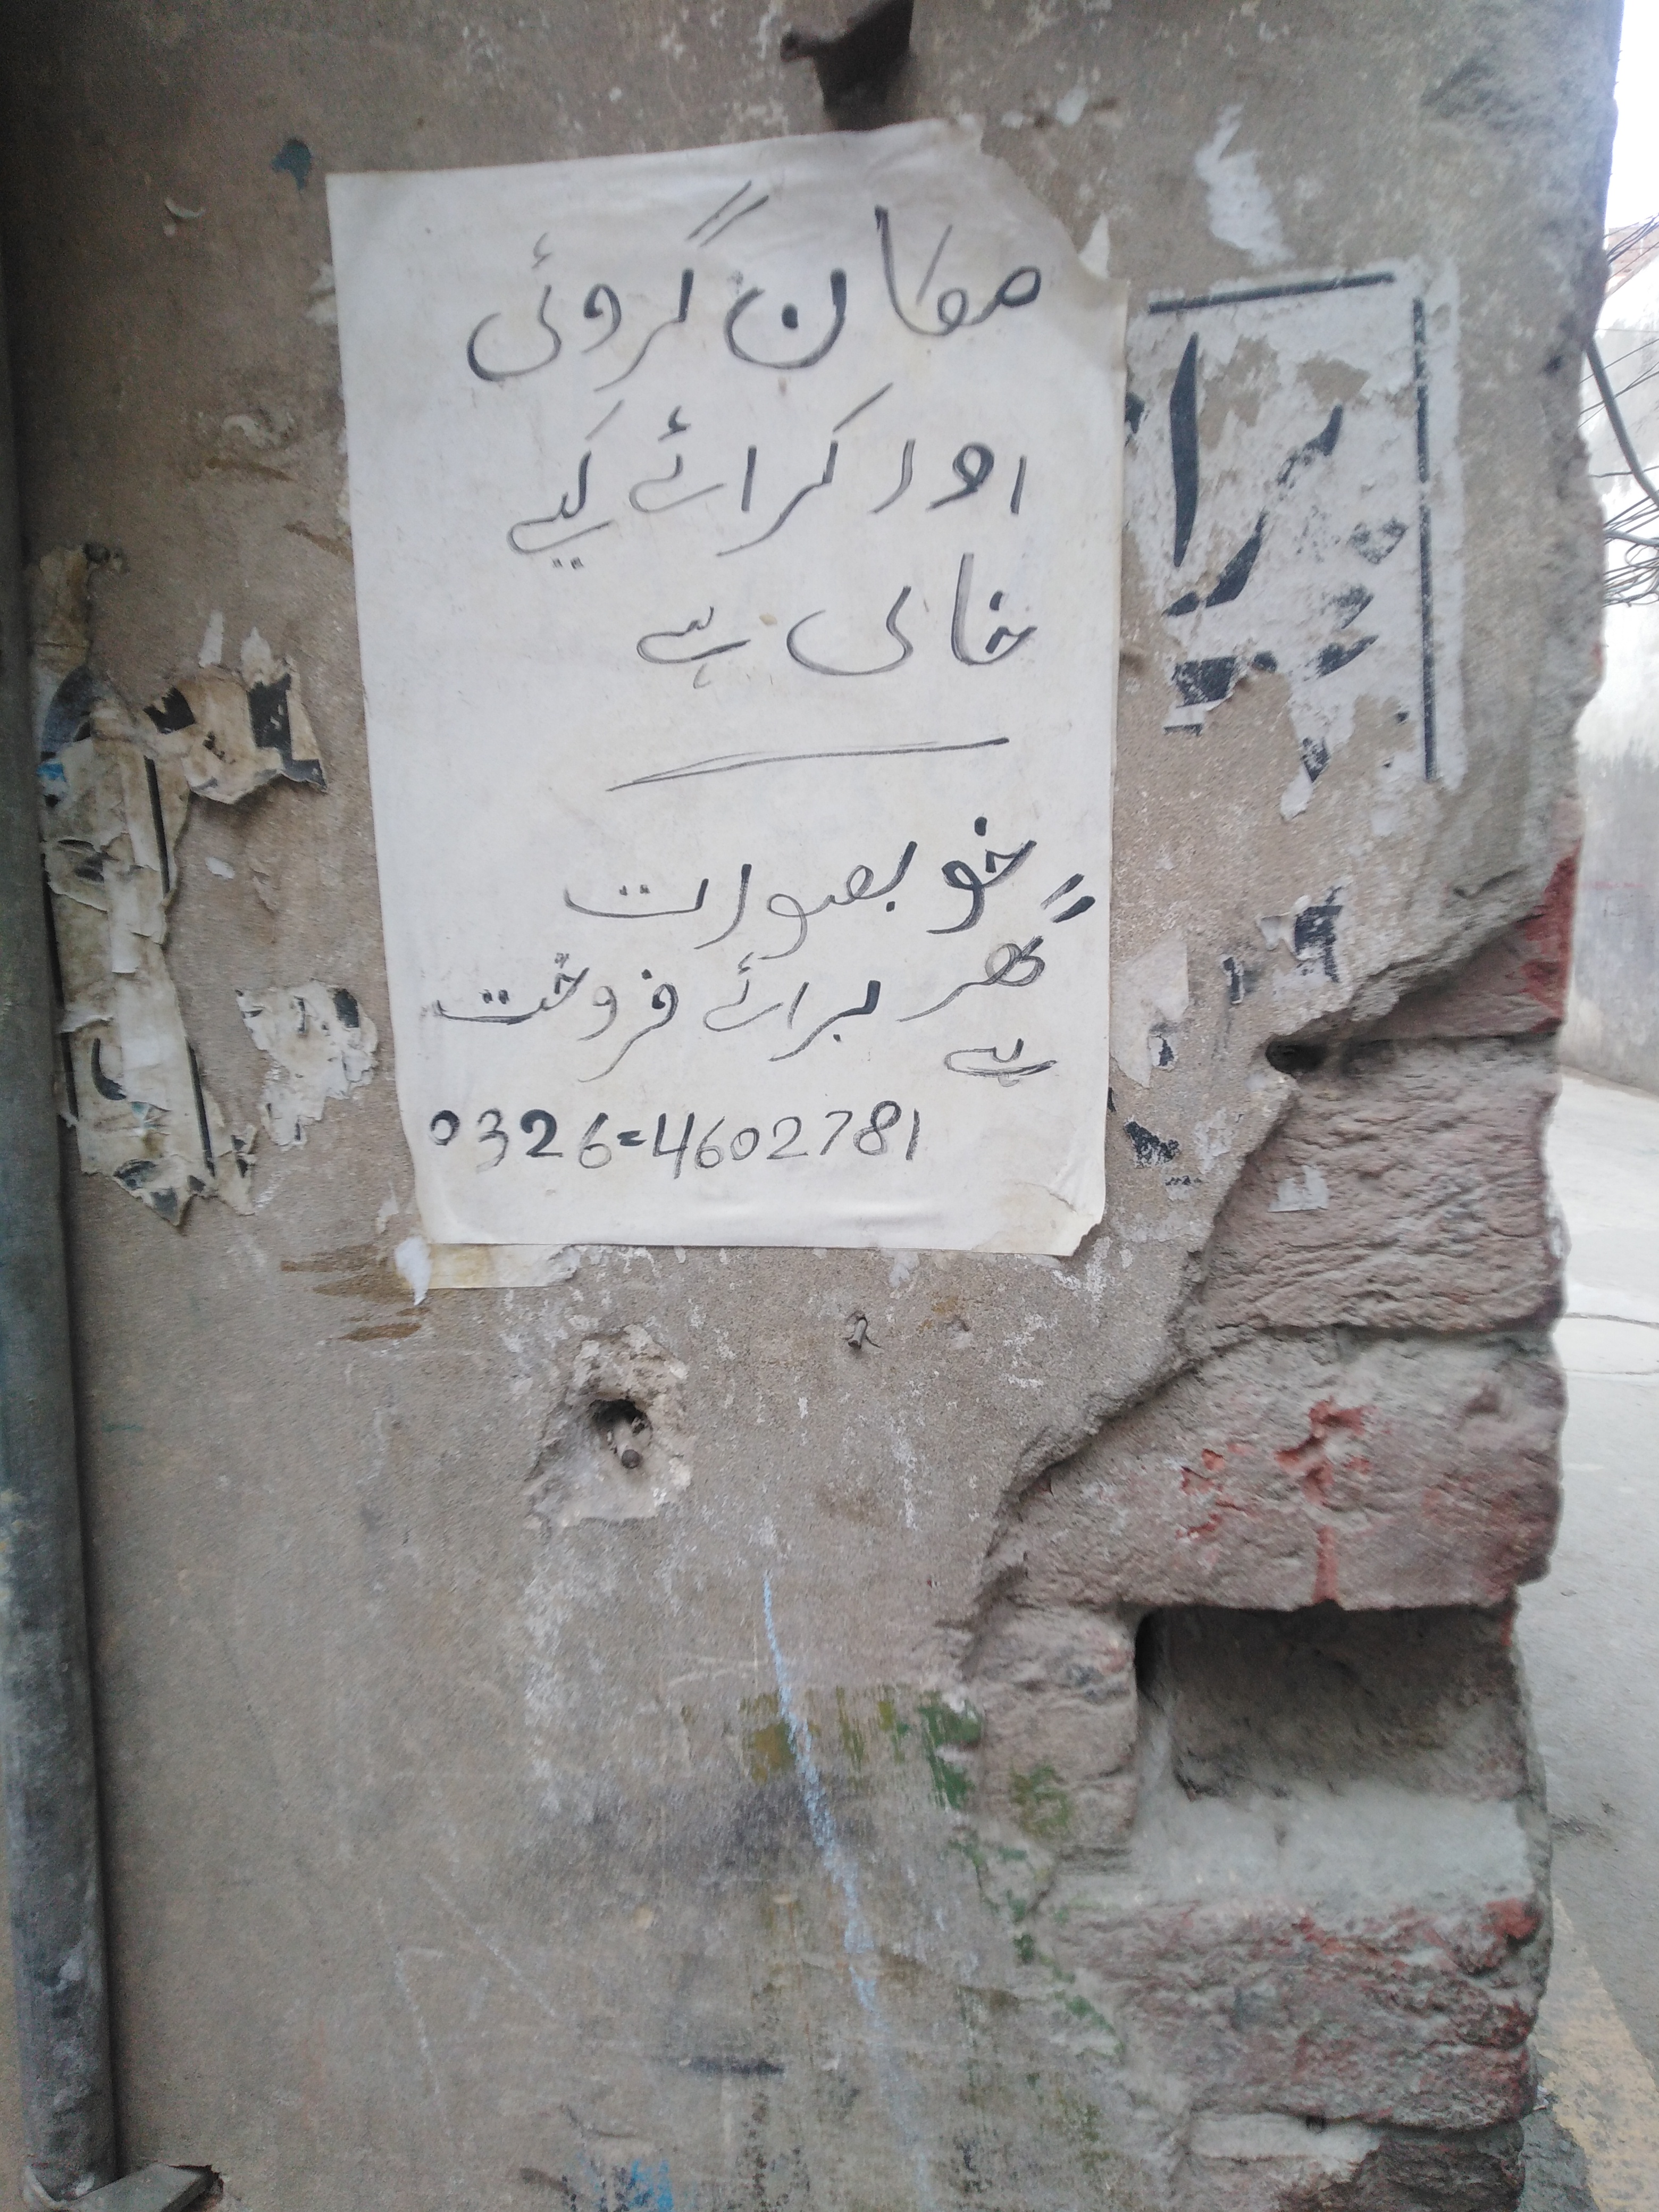 مکان گروئی
اور کرائے کیے
خالی ہے
خوبصورت
گھر برائے فروخت
ہے
0326=4602781